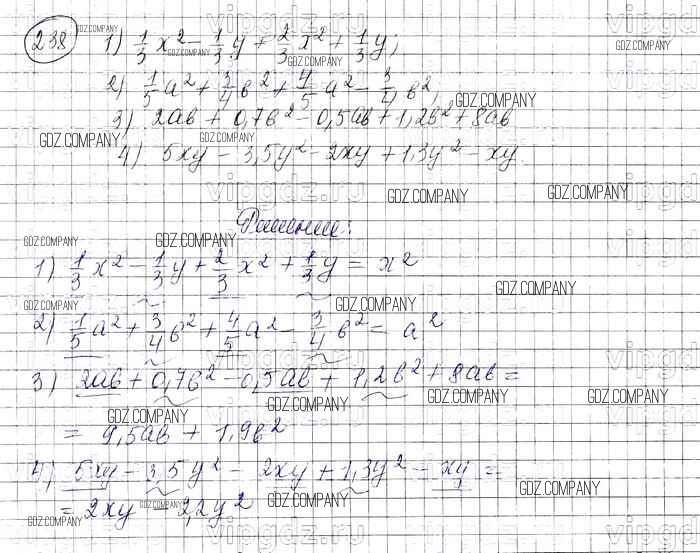 238 1) 1/3 x² - 1/3 y + 2/3 x² + 1/3 y;
2) 1/5 a² + 3/4 b² + 4/5 a² - 3/4 b²;
3) 2ab + 0,7b² - 0,5ab + 1,2b² + 8ab
4) 5xy - 3,5y² - 2xy + 1,3y² - xy
Решение:
1) 1/3 x² - 1/3 y + 2/3 x² + 1/3 y = x²
2) 1/5 a² + 3/4 b² + 4/5 a² - 3/4 b² = a²
3) 2ab + 0,7b² - 0,5ab + 1,2b² + 8ab =
= 9,5ab + 1,9b²
4) 5xy - 3,5y² - 2xy + 1,3y² - xy =
= 2xy - 2,2y²
GDZ.COMPANY
vipgdz.ru